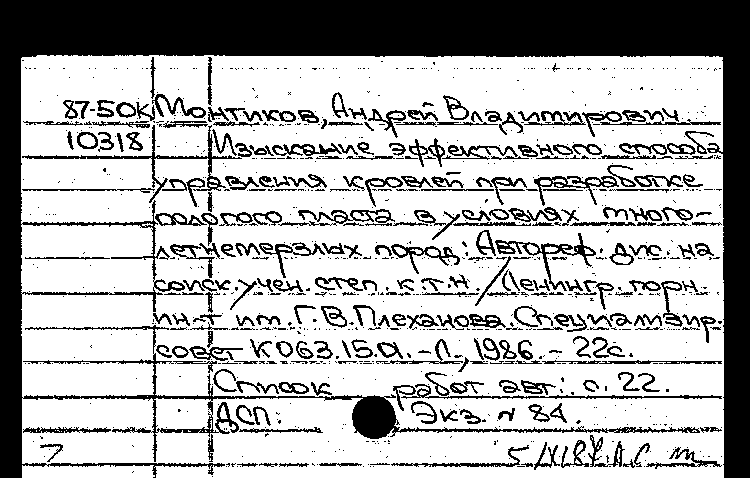 87-50К Монтиков, Андрей Владимирович
10318 Изыскание эффективного способа
управления кровлей при разработке
пологого пласта в условиях много-
летнемерзлых пород: Автореф. дис. на
соиск. учен. степ. к.т.н. / Ленингр. горн.
ин-т им. Г.В. Плеханова. Специализир.
совет К 063.15.01. - Л., 1986. - 22с.
Список работ авт.: с. 22.
ДСП. Экз. № 84.
7